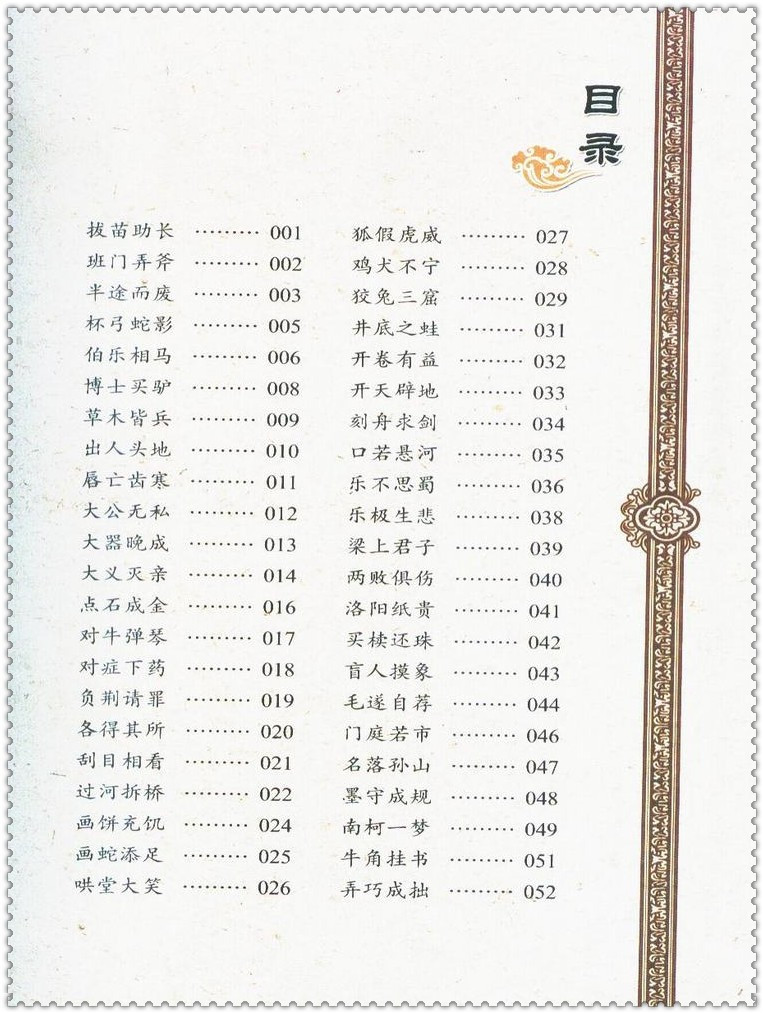 目录
拔苗助长 ········· 001
班门弄斧 ········· 002
半途而废 ········· 003
杯弓蛇影 ········· 005
伯乐相马 ········· 006
博士买驴 ········· 008
草木皆兵 ········· 009
出人头地 ········· 010
唇亡齿寒 ········· 011
大公无私 ········· 012
大器晚成 ········· 013
大义灭亲 ········· 014
点石成金 ········· 016
对牛弹琴 ········· 017
对症下药 ········· 018
负荆请罪 ········· 019
各得其所 ········· 020
刮目相看 ········· 021
过河拆桥 ········· 022
画饼充饥 ········· 024
画蛇添足 ········· 025
哄堂大笑 ········· 026
狐假虎威 ········· 027
鸡犬不宁 ········· 028
狡兔三窟 ········· 029
井底之蛙 ········· 031
开卷有益 ········· 032
开天辟地 ········· 033
刻舟求剑 ········· 034
口若悬河 ········· 035
乐不思蜀 ········· 036
乐极生悲 ········· 038
梁上君子 ········· 039
两败俱伤 ········· 040
洛阳纸贵 ········· 041
买椟还珠 ········· 042
盲人摸象 ········· 043
毛遂自荐 ········· 044
门庭若市 ········· 046
名落孙山 ········· 047
墨守成规 ········· 048
南柯一梦 ········· 049
牛角挂书 ········· 051
弄巧成拙 ········· 052